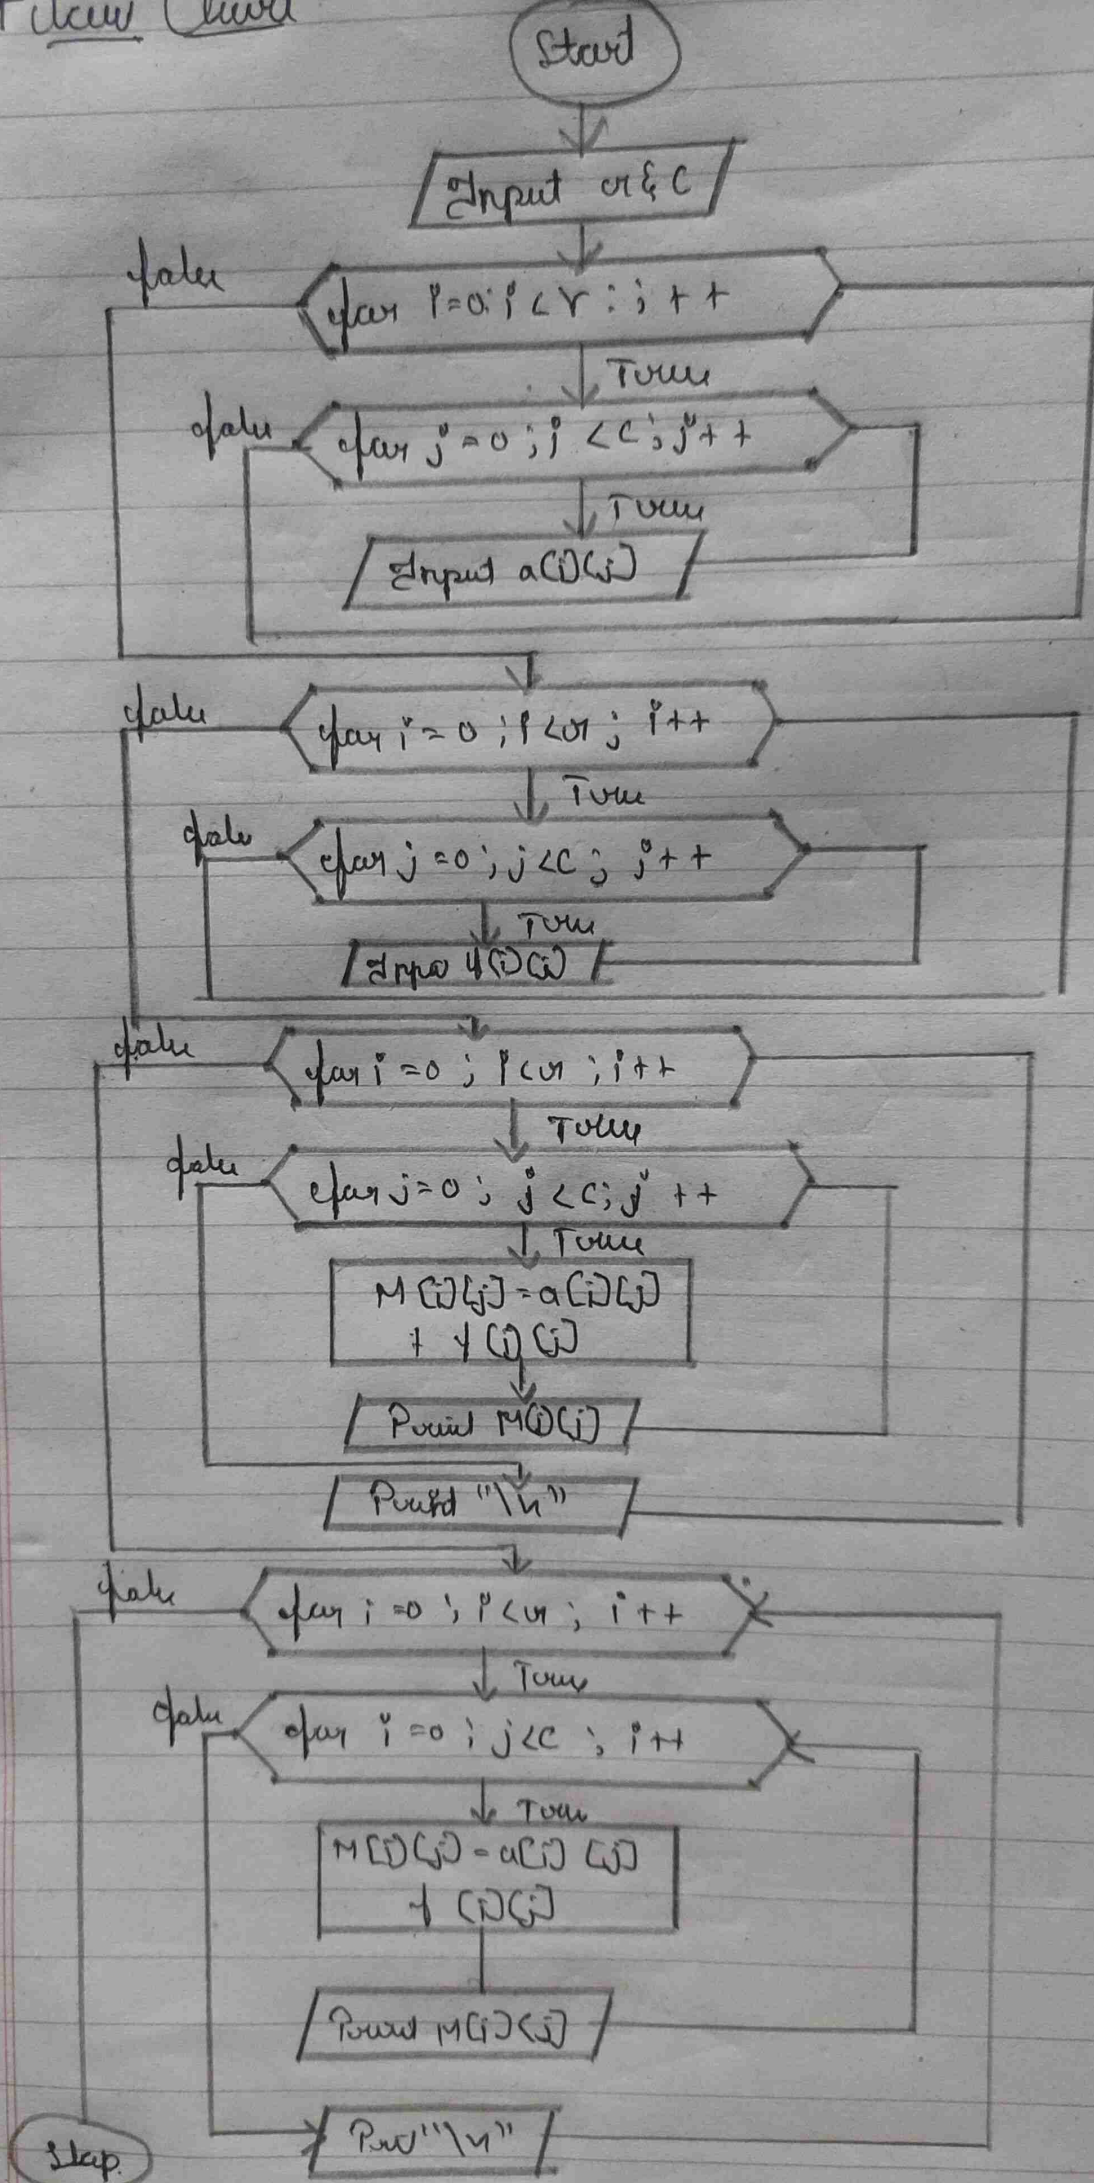 Flow Chart
Start
Input r & C
false
for i=0; i<r; i++
True
false
for j=0; j<c; j++
True
Input a[i][j]
false
for i=0; i<r; i++
True
false
for j=0; j<c; j++
True
Inpu y[i][j]
false
for i=0; i<r; i++
True
false
for j=0; j<c; j++
True
M[i][j]=a[i][j]
+ y[i][j]
Print M[i][j]
Print "\n"
false
for i=0; i<r; i++
True
false
for i=0; j<c; i++
True
M[i][j]=a[i][j]
y[i][j]
Print M[i][j]
"\n"
Stop